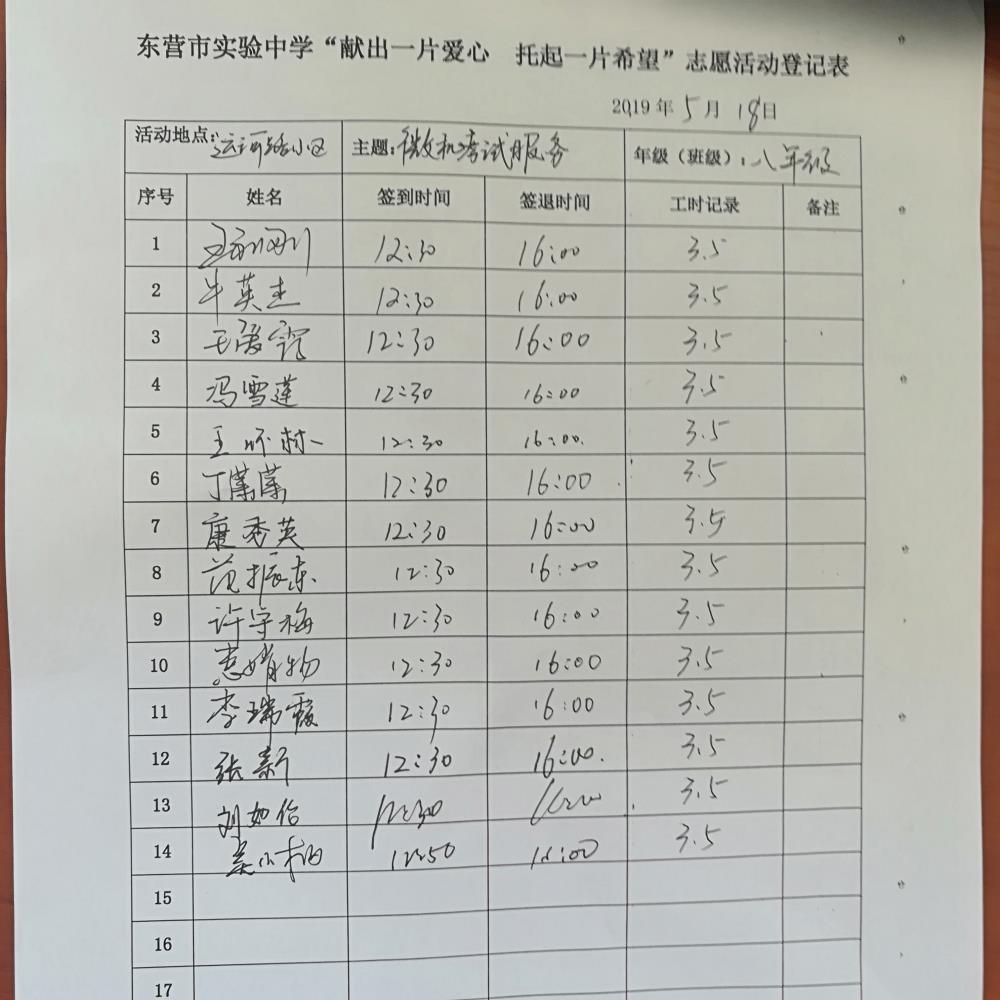 东营市实验中学“献出一片爱心 托起一片希望”志愿活动登记表
2019年5月18日
活动地点：运河路小区 主题：微机考试服务 年级（班级）：八年级
序号 姓名 签到时间 签退时间 工时记录 备注
1 12:30 16:00 3.5
2 牛英杰 12:30 16:00 3.5
3 12:30 16:00 3.5
4 冯雪莲 12:30 16:00 3.5
5 12:30 16:00. 3.5
6 12:30 16:00 3.5
7 康秀英 12:30 16:00 3.5
8 范振东 12:30 16:00 3.5
9 许守梅 12:30 16:00 3.5
10 12:30 16:00 3.5
11 李瑞霞 12:30 16:00 3.5
12 张新 12:30 16:00. 3.5
13 12:30 16:00 3.5
14 12:50 16:00 3.5
15
16
17